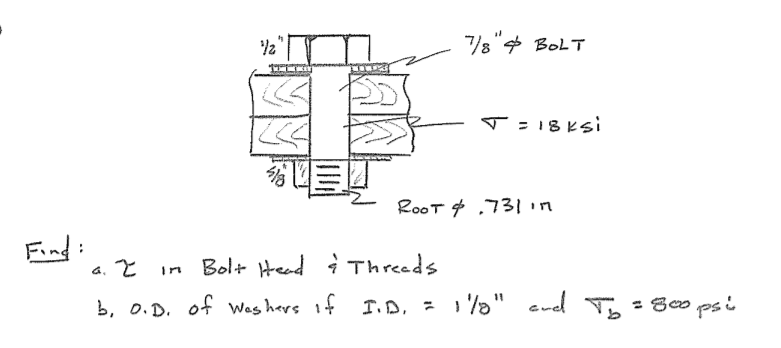 1/2"
7/8" ϕ BOLT
σ = 18 ksi
5/8"
ROOT ϕ .731 in
Find:
a. τ in Bolt Head & Threads
b. O.D. of Washers if I.D. = 1 1/8" and σb = 800 psi